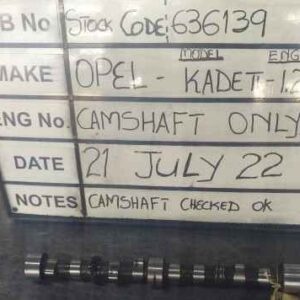 B No STOCK CODE: 636139
MODEL ENG
MAKE OPEL - KADETT - 1.2
ENG No. CAMSHAFT ONLY
DATE 21 JULY 22
NOTES CAMSHAFT CHECKED OK